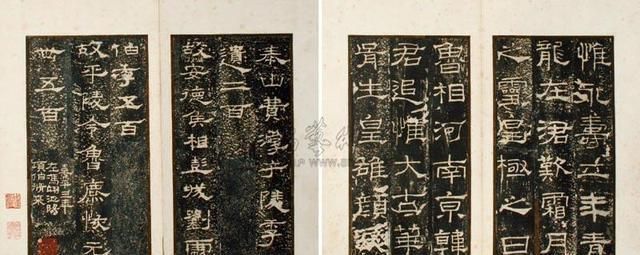 惟永壽二年青
龍在涒歎霜月
之靈皇極之日
魯相河南京韓
君追惟大古華
胥生皇雄顏
泰山費淳于隣季
遺二百
故安德侯相彭城劉彪
伯存五百
故平陵令魯麃恢元
世五百